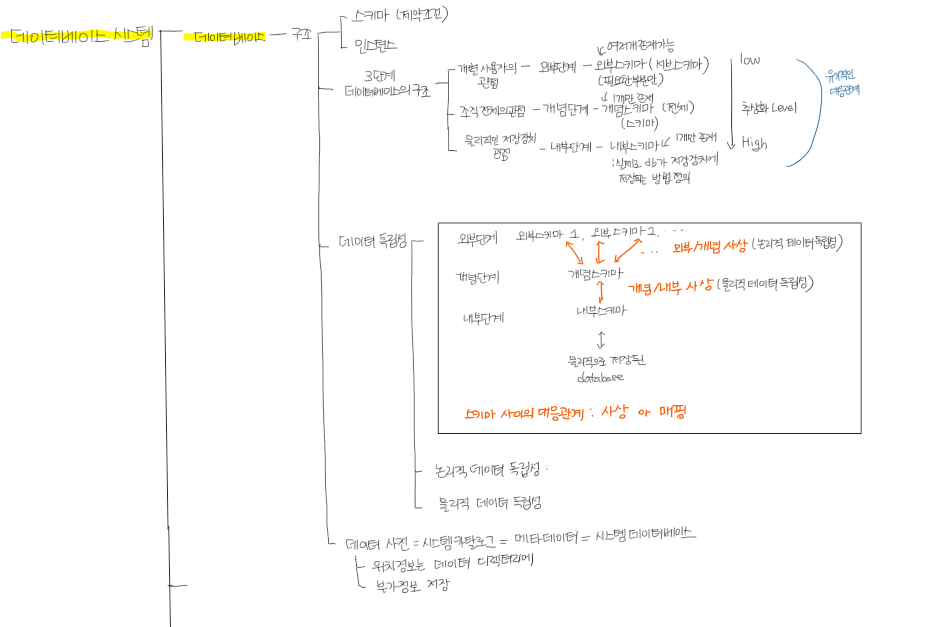 데이터베이스 시스템
데이터베이스 - 구조
스키마 (제약조건)
인스턴스
3단계
데이터베이스의 구조
개별 사용자의 관점 - 외부단계 - 외부스키마 (서브스키마)
여러개 존재가능
(필요한 부분만)
조직 전체의 관점 - 개념단계 - 개념스키마 (전체)
1개만 존재
(스키마)
물리적인 저장장치 관점 - 내부단계 - 내부스키마
1개만 존재
: 실제로 db가 저장장치에
저장되는 방법 정의
low
추상화 Level
High
유기적인
대응관계
데이터 독립성
외부단계 외부스키마 1, 외부스키마 2, ...
... 외부/개념 사상 (논리적 데이터독립성)
개념단계 개념스키마
개념/내부 사상 (물리적 데이터독립성)
내부단계 내부스키마
물리적으로 저장된
database
스키마 사이의 대응관계 : 사상 or 매핑
논리적 데이터 독립성 :
물리적 데이터 독립성
데이터 사전 = 시스템카탈로그 = 메타데이터 = 시스템 데이터베이스
위치정보는 데이터 디렉터리에
부가정보 저장